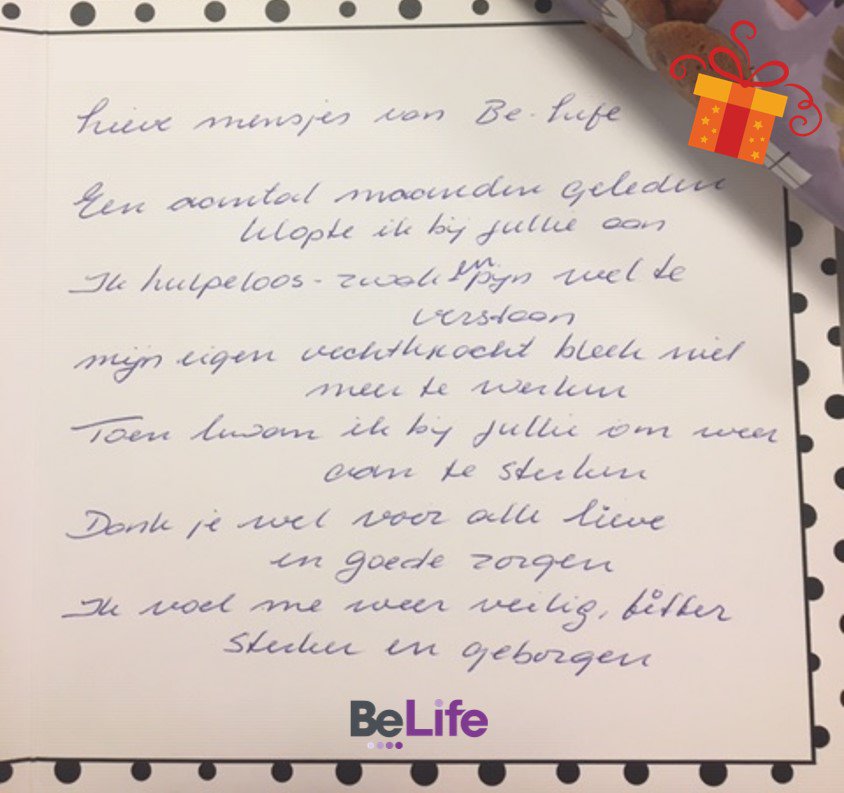 Lieve mensjes van Be-Life
Een aantal maanden geleden
klopte ik bij jullie aan
Ik hulpeloos - zwak en pijn wel te
verstaan
mijn eigen vechtkracht bleek niet
meer te werken
Toen kwam ik bij jullie om weer
aan te sterken
Dank je wel voor alle lieve
en goede zorgen
Ik voel me weer veilig, fitter
sterker en geborgen
BeLife